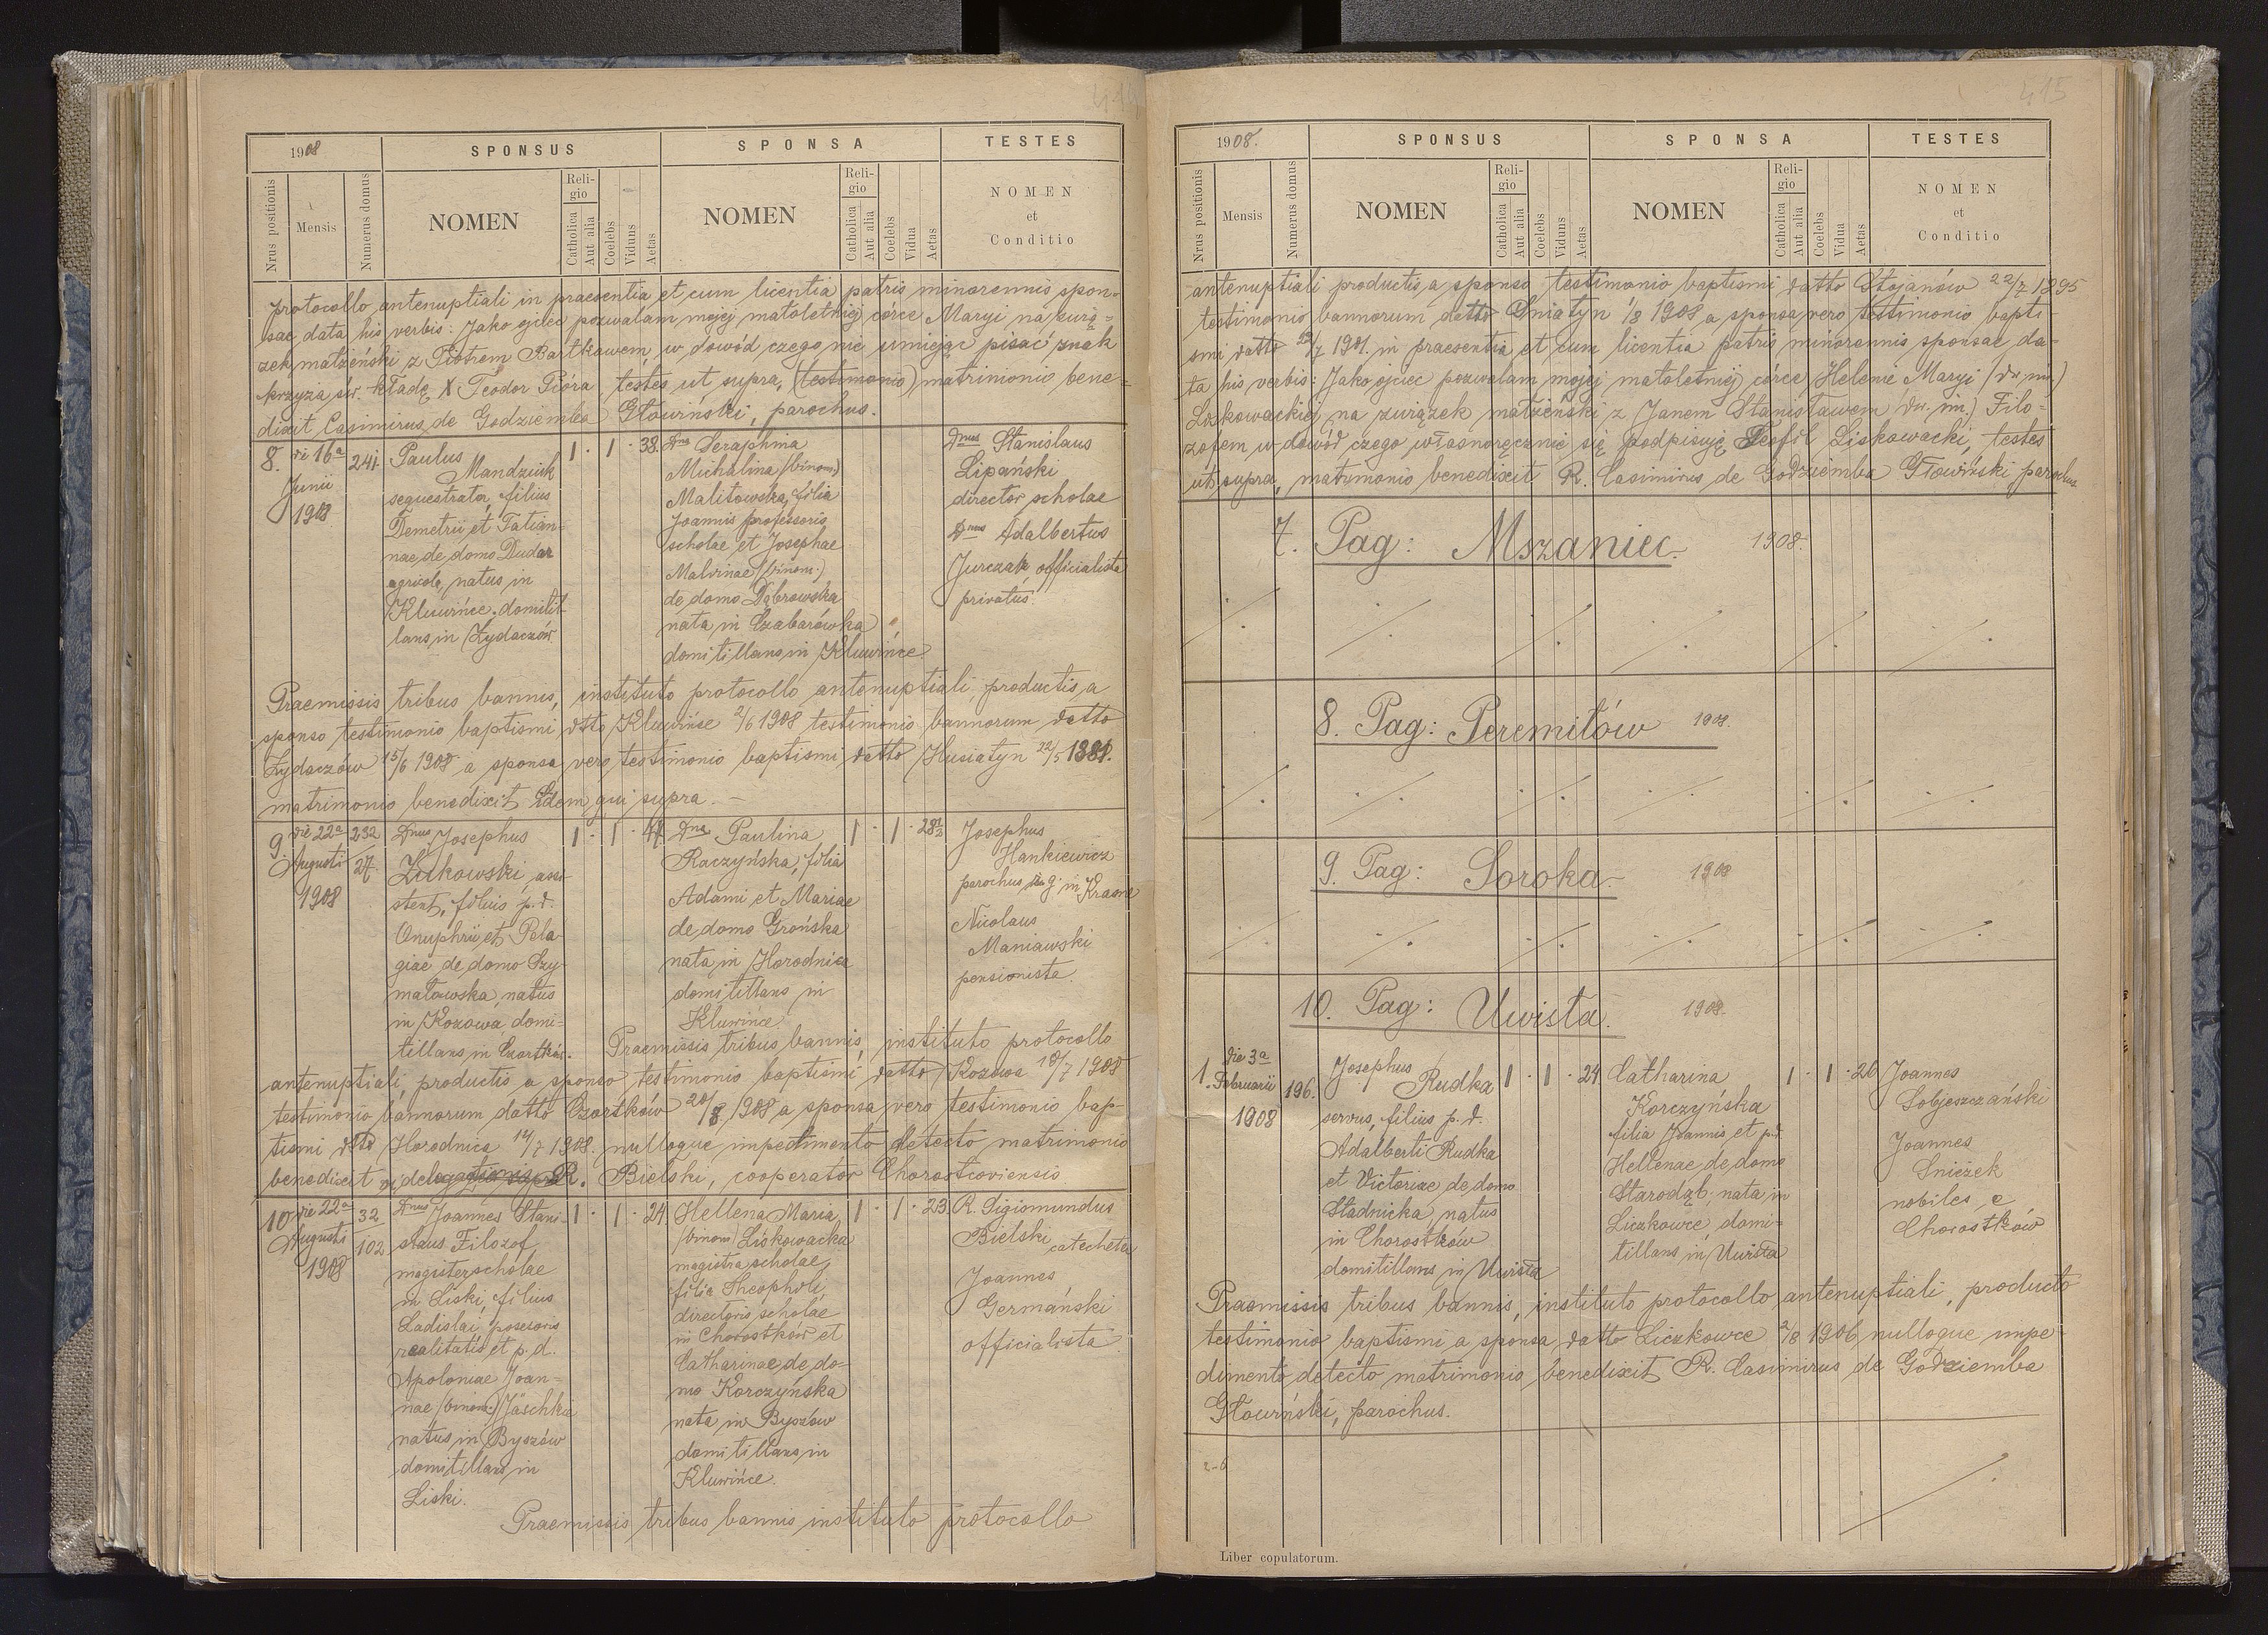 414
1908
SPONSUS
SPONSA
TESTES
Nrus positionis
Mensis
Numerus domus
NOMEN
Religio
Catholica
Aut alia
Coelebs
Viduns
Aetas
NOMEN
Religio
Catholica
Aut alia
Coelebs
Vidua
Aetas
NOMEN
et
Conditio
protocollo antenuptiali in praesentia et cum licentia patris minorennis spon-
sae data his verbis: Jako ojciec pozwalam mojej małoletniej córce Maryi na zwią-
zek małżeński z Piotrem Bartkawem, w dowód czego nie umiejąc pisać znak
krzyża św. kładę X Teodor Pióra, testes ut supra, (testimonio) matrimonio bene-
dixit Casimirus de Godziemba Głowiński, parochus.
8.
die 16a
Junii
1908
241.
Paulus
Mandziuk
sequestrator, filius
Demetrii et Tatian-
nae de domo Dudar
agricola, natus in
Kluwińce, domitil-
lans in Żydaczów
1 · 1 · 38.
Dna Seraphina
Michalina (binom)
Malitowska, filia
Joannis professoris
scholae et Josephae
Malvinae (binom.)
de domo Dąbrowska
nata in Czabarówka
domitillans in Kluwińce
Dnus Stanislaus
Lipański
director scholae
Dnus Adalbertus
Jurczak officialista
privatus
Praemissis tribus bannis, instituto protocollo antenuptiali productis, a
sponso testimonio baptismi dtto Kluwińse 2/6 1908 testimonio bannorum datto
Żydaczów 15/6 1908 a sponsa vero testimonio baptismi datto Husiatyn 22/5 1881.
matrimonio benedixit Idem qui supra.
9.
die 22a
Augusti
1908
232
27
Dnus Josephus
Żukowski, assi-
stent, filius p. d.
Onuphrii et Pela-
giae de domo Szy-
matowska, natus
in Kozowa, domi-
tillans in Czortków.
1 · 1 ·
Dna Paulina
Raczyńska, filia
Adami et Mariae
de domo Grońska
nata in Horodnica
domitillans in
Kluwińce
1 · 1 ·
Josephus
Hankiewicz
parochus in Krasne
Nicolaus
Maniawski
pensionista
Praemissis tribus bannis, instituto protocollo
antenuptiali, productis a sponso testimonio baptismi datto Kozowa 18/7 1908
testimonio bannorum datto Czortków 20/8 1908 a sponsa vero testimonio bap-
tismi dtto Horodnica 14/7 1908. nulloque impedimento detecto matrimonio
benedixit R. Bielski, cooperator Chorostcoviensis
10
die 22a
Augusti
1908
32
102
Dnus Joannes Stani-
slaus Filozof
magister scholae
in Liski, filius
Ladislai posesoris
realitatis et p. d.
Apoloniae Joan-
nae (binom.) Jäschke
natus in Byszów
domitillans in
Liski.
1 · 1 · 24.
Hellena Maria
(binom) Liskowacka
magistra scholae,
filia Theophili,
directoris scholae
in Chorostków et
Catharinae de do-
mo Korczyńska
nata in Byszów
domitillans in
Kluwińce.
1 · 1 · 23.
R. Sigismundus
Bielski catecheta
Joannes
Germański
officialista
Praemissis tribus bannis instituto protocollo
415
1908.
SPONSUS
SPONSA
TESTES
Nrus positionis
Mensis
Numerus domus
NOMEN
Religio
Catholica
Aut alia
Coelebs
Viduns
Aetas
NOMEN
Religio
Catholica
Aut alia
Coelebs
Vidua
Aetas
NOMEN
et
Conditio
antenuptiali productis, a sponso testimonio baptismi datto Stojanów 22/7 1895
testimonio bannorum datto Śniatyn 1/8 1908 a sponsa vero testimonio bapti-
smi datto 1901. in praesentia et cum licentia patris minorennis sponsae da-
ta his verbis: Jako ojciec pozwalam mojej małoletniej córce Helenie Maryi (dw. im.)
Liskowackiej na związek małżeński z Janem Stanisławem (dw. im.) Filo-
zofem w dowód czego własnoręcznie się podpisuję Teofil Liskowacki, testes
ut supra, matrimonio benedixit R. Casimirus de Godziemba Głowiński parochus
7. Pag: Mszaniec. 1908.
8. Pag: Peremiłów 1908.
9. Pag: Soroka 1908
10. Pag: Uwisła. 1908.
1.
die 3a
Februarii
1908
196.
Josephus
Rudka
servus, filius p. d.
Adalberti Rudka
et Victoriae de domo
Stadnicka, natus
in Chorostków
domitillans in Uwisła
1 · 1 · 24
Catharina
Korczyńska
filia Joannis et p.d.
Hellenae de domo
Starodąb, nata in
Liczkowce, domi-
tillans in Uwisła
1 · 1 · 20
Joannes
Sobjeszczański
Joannes
Śnieżek
nobiles, e
Chorostków
Praemissis tribus bannis, instituto protocollo antenuptiali, producto
testimonio baptismi a sponsa datto Liczkowce 2/8 1906 nulloque impe-
dimento detecto matrimonio benedixit R. Casimirus de Godziemba
Głowiński, parochus.
2-6
Liber copulatorum.